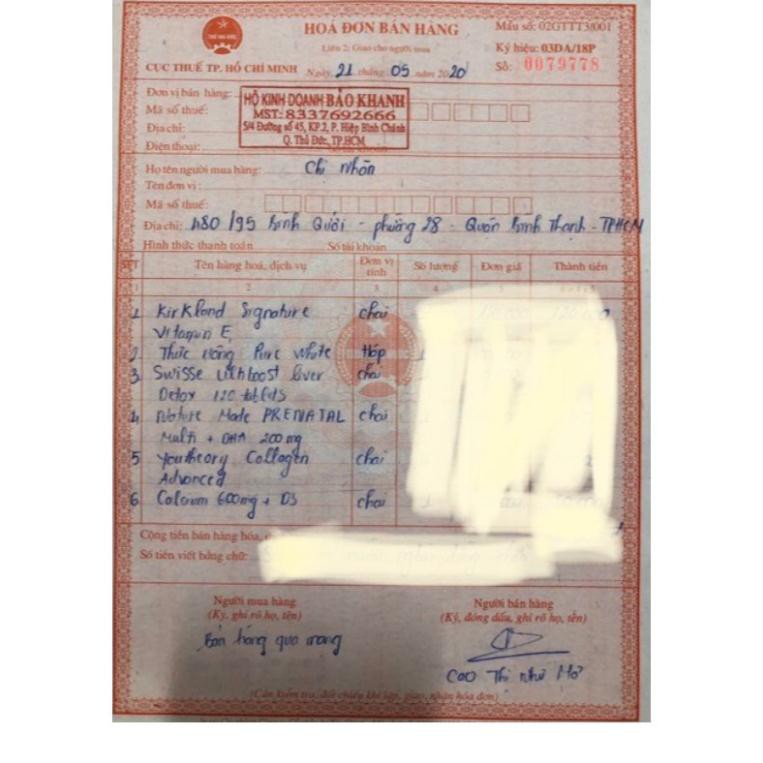 HOÁ ĐƠN BÁN HÀNG
Mẫu số: 02GTTT3/001
Liên 2: Giao cho người mua
Ký hiệu: 03DA/18P
CỤC THUẾ TP. HỒ CHÍ MINH
Ngày 21 tháng 05 năm 2020
Số: 0079778
Đơn vị bán hàng:
HỘ KINH DOANH BẢO KHANH
Mã số thuế:
MST: 8337692666
Địa chỉ:
5/4 Đường số 45, KP.2, P. Hiệp Bình Chánh
Q. Thủ Đức, TP.HCM
Điện thoại:
Họ tên người mua hàng: Chị Nhân
Tên đơn vị:
Mã số thuế:
Địa chỉ: 480/95 Bình Quới - phường 28 - Quận Bình Thạnh - TPHCM
Hình thức thanh toán Số tài khoản
STT Tên hàng hoá, dịch vụ Đơn vị tính Số lượng Đơn giá Thành tiền
1 2 3 4
1 Kirkland Signature chai
Vitamin E
2 Thức uống Pure White Hộp
3 Swisse Ultiboost liver chai
Detox 120 tablets
4 Nature Made PRENATAL chai
Multi + DHA 200mg
5 Youtheory Collagen chai
Advanced
6 Calcium 600mg + D3 chai 1
Cộng tiền bán hàng hóa,
Số tiền viết bằng chữ:
Người mua hàng Người bán hàng
(Ký, ghi rõ họ, tên) (Ký, đóng dấu, ghi rõ họ, tên)
Bán hàng qua mạng
Cao Thị Như Mơ
(Cần kiểm tra, đối chiếu khi lập, giao, nhận hóa đơn)